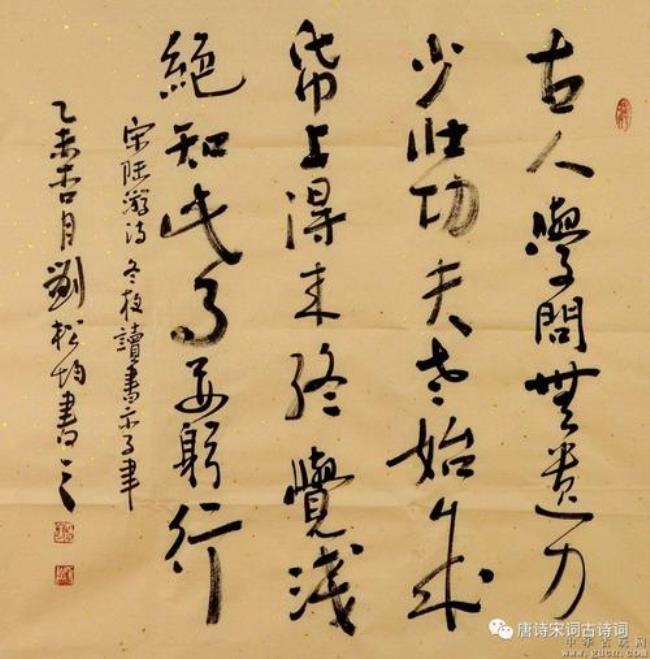 古人學問無遺力
少壯功夫老始成
帋上得来終覺淺
絕知此事要躬行
宋陸游诗 冬夜讀書示子聿
乙未杏月劉松均書之
唐诗宋词古诗词
中华古玩网
www.gucn.com